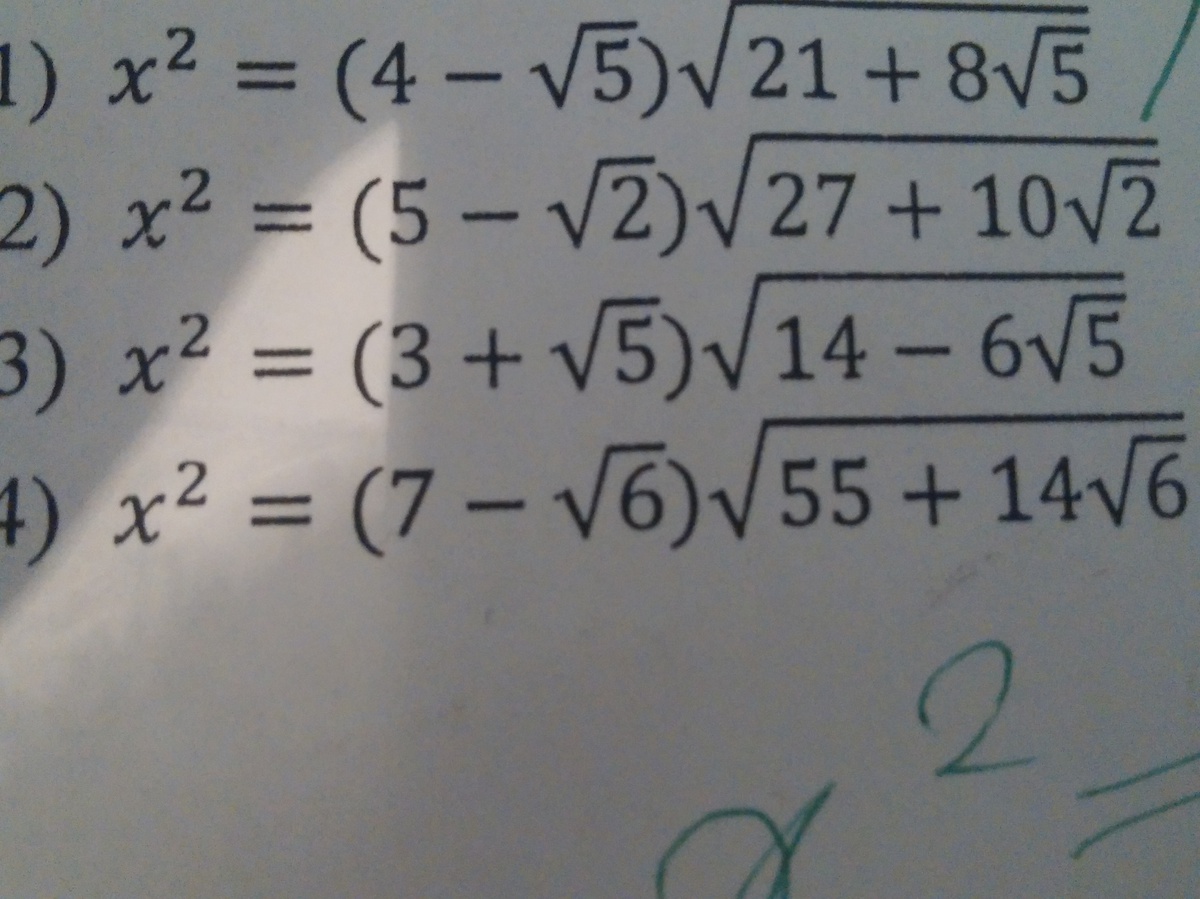 1) x² = (4 − √5)√(21 + 8√5)
2) x² = (5 − √2)√(27 + 10√2)
3) x² = (3 + √5)√(14 − 6√5)
4) x² = (7 − √6)√(55 + 14√6)
x² =